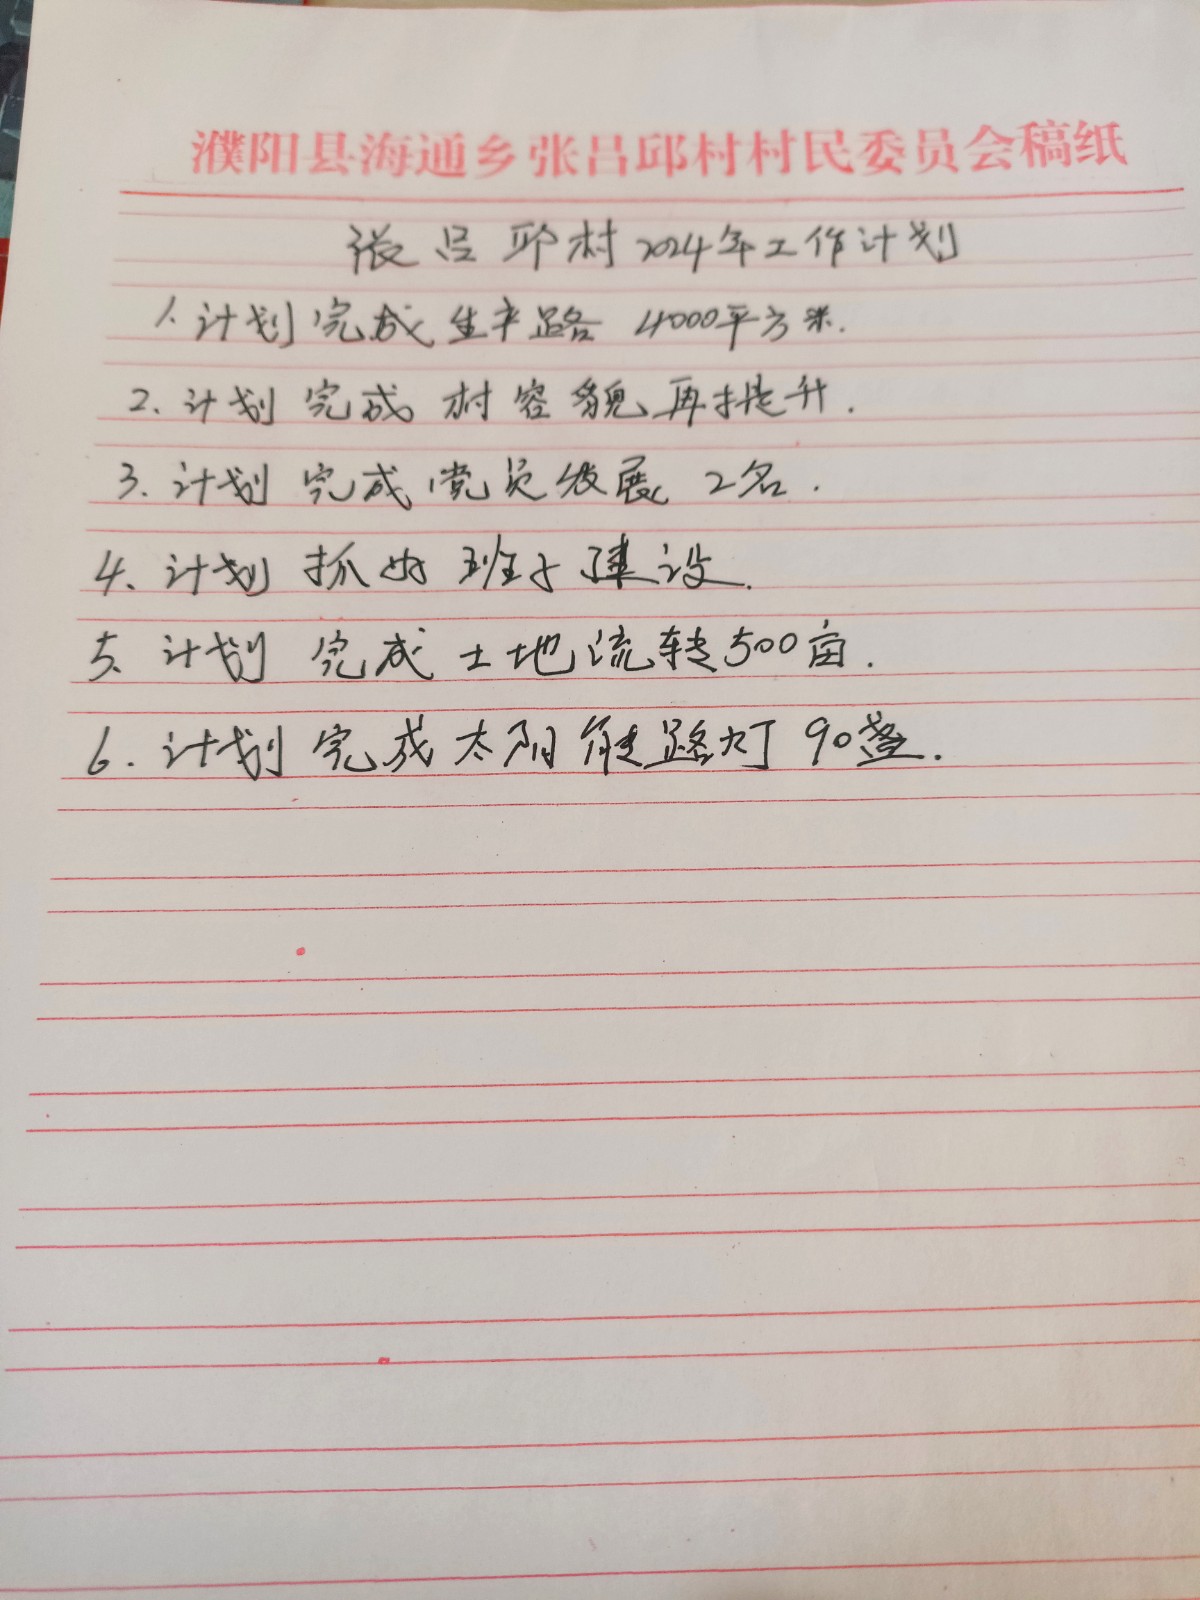 濮阳县海通乡张吕邱村村民委员会稿纸
张吕邱村2024年工作计划
1.计划完成生产路 4000平方米.
2.计划完成村容貌再提升.
3.计划完成党员发展 2名.
4.计划抓好班子建设.
5.计划完成土地流转500亩.
6.计划完成太阳能路灯90盏.